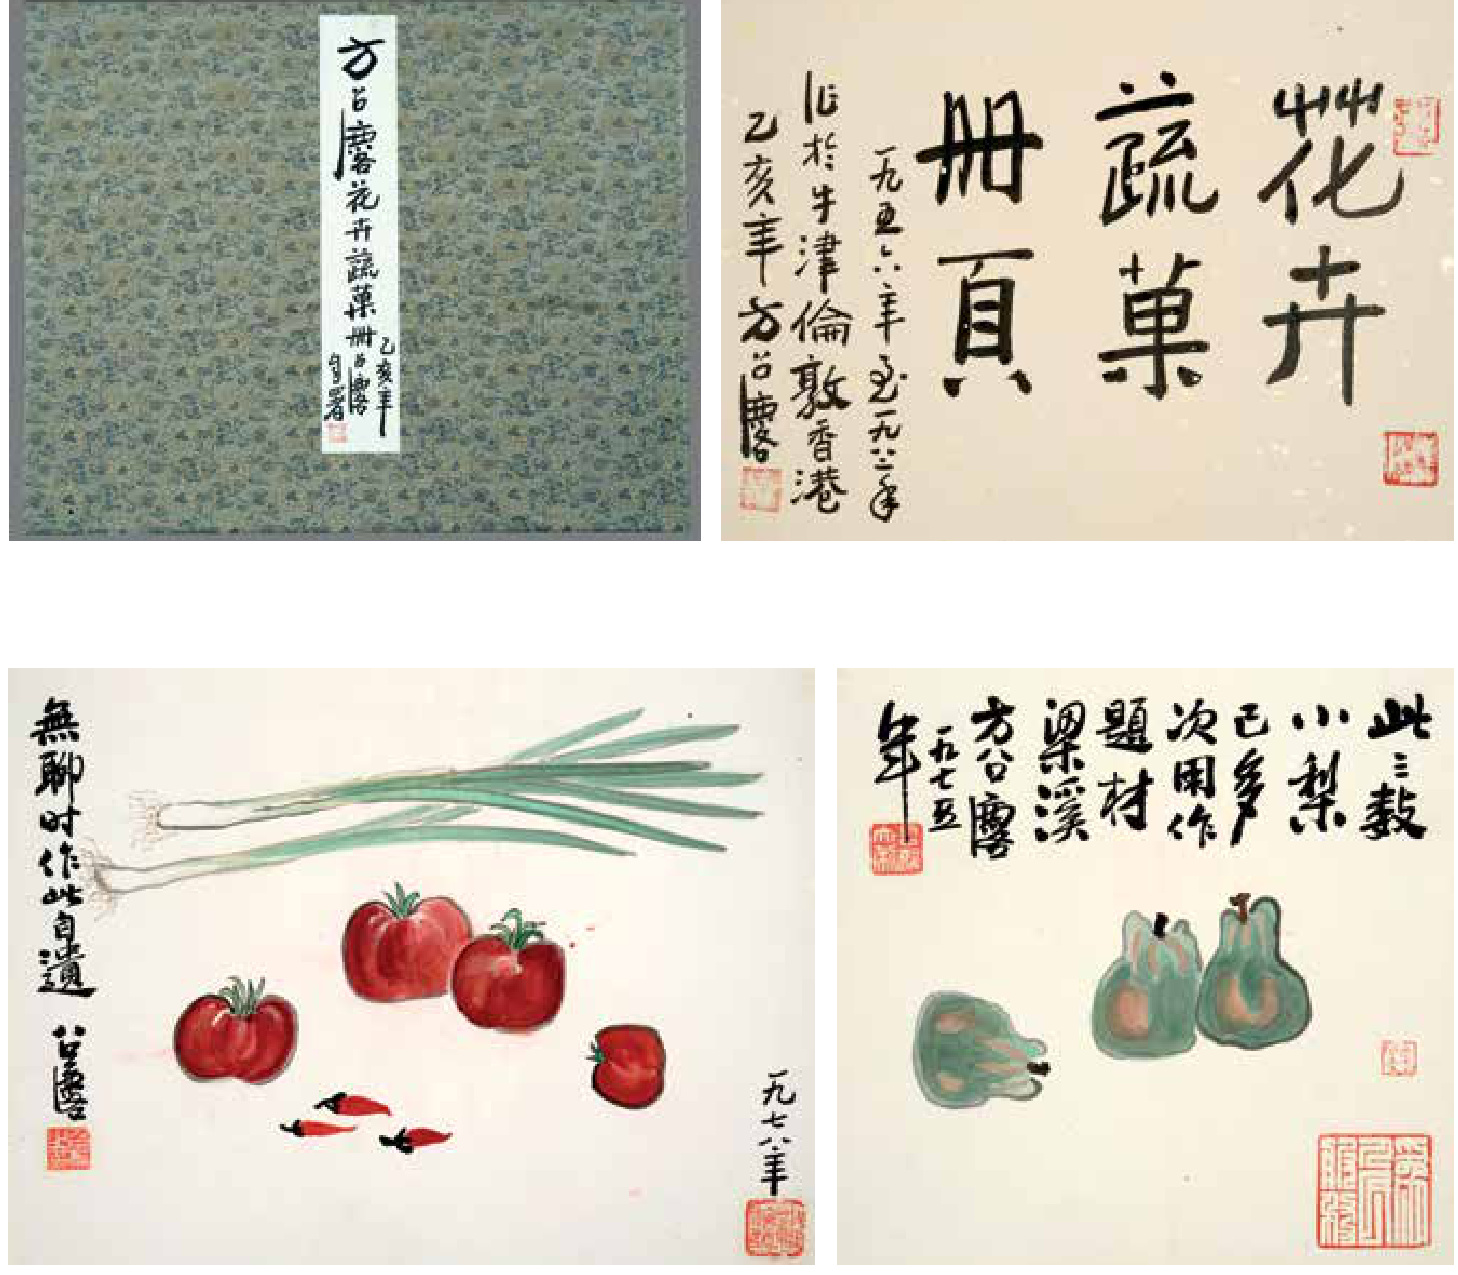 方召麐花卉蔬菓冊
乙亥年
召麐
自署
花卉
蔬菓
冊頁
一九五六年至一九八二年
作於牛津倫敦香港
乙亥年方召麐
無聊时作此自遣
召麐
一九七八年
此三数
小梨
已多
次用作
題材
梁溪
方召麐
一九七五
年